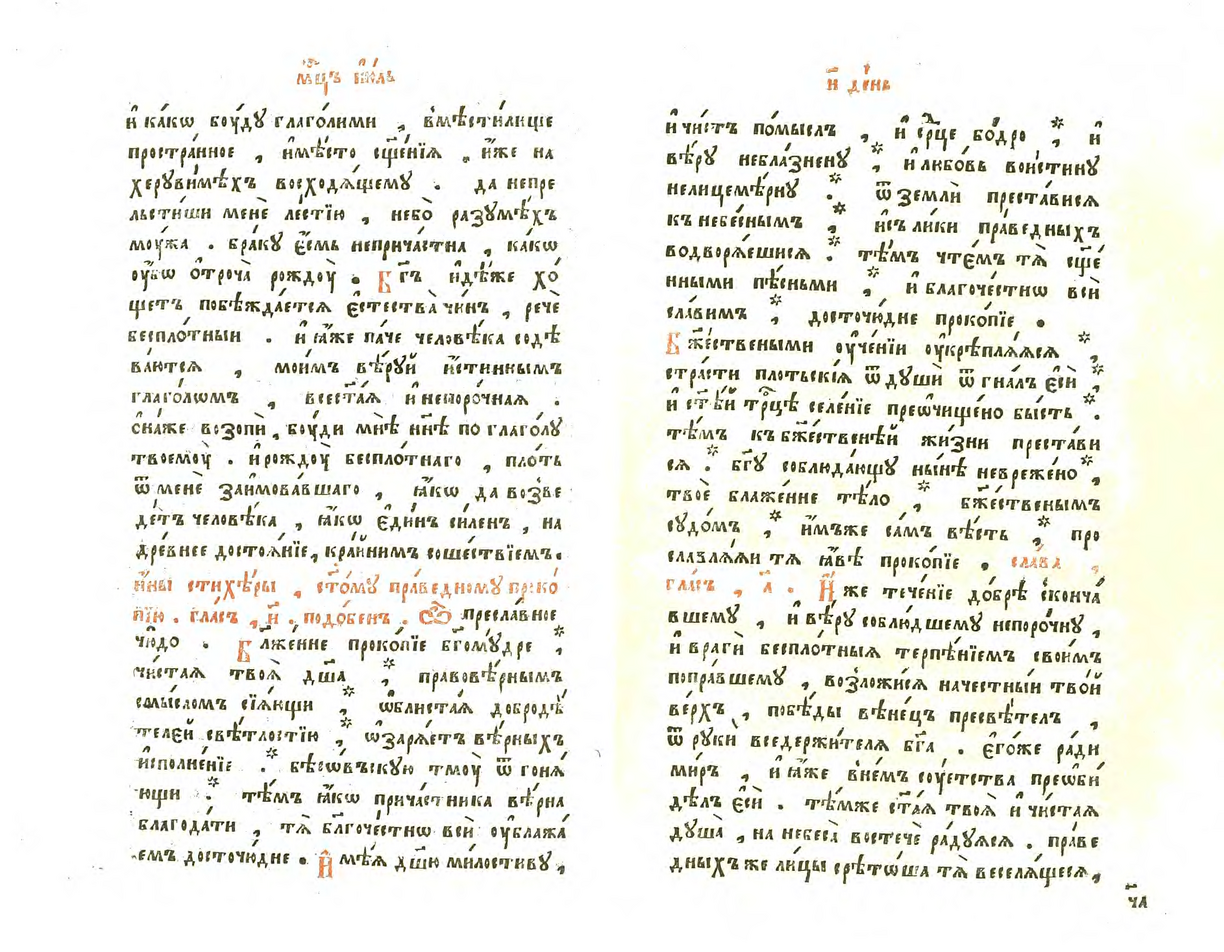 мц҇ъ і҆ю́ль
и҆ ка́кѡ бꙋ́дꙋ глаго́лими , вмѣсти́лище
простра́нное , и҆мѣ́сто сщ҃е́нїѧ , и҆́же на
херꙋви́мѣхъ восходѧ́щемꙋ . да непре
льсти́ши менѐ ле́стїю , небо̀ разꙋмѣ́хъ
мꙋ́жа . бра́кꙋ є҆́смь неприча́стна , ка́кѡ
ᲂу҆́бѡ ѻ҆троча̀ рождꙋ̀ . Бг҃ъ и҆дѣ́же хо́
щетъ побѣжда́етсѧ є҆стества̀ чи́нъ , речѐ
беспло́тныи . и҆ ꙗ҆̀же па́че человѣ́ка содѣ́
ваютсѧ , мои́мъ вѣ́рꙋй и҆́стиннымъ
глаго́лѡмъ , всест҃а́ѧ и҆ непоро́чнаѧ .
Ѻ҆на́же возопѝ , бꙋ́ди мнѣ̀ нн҃ѣ по глаго́лꙋ
твоемꙋ̀ . и҆ рождꙋ̀ беспло́тнаго , пло́ть
ѿ менѐ заимова́вшаго , ꙗ҆́кѡ да возве
де́тъ человѣ́ка , ꙗ҆́кѡ є҆ди́нъ си́ленъ , на
дре́внее достоѧ́нїе , кра́йнимъ соше́ствїемъ .
и҆́ны стихѣ́ры , ст҃о́мꙋ пра́ведномꙋ проко́
пїю . гла́съ , и҃ . подо́бенъ . Ѽ пресла́вное
чю́до . Бл҃же́нне проко́пїе бг҃омꙋ́дре ,
чи́стаѧ твоѧ̀ дш҃а , правовѣ́рнымъ
смы́сломъ сїѧ́ющи , ѡ҆блиста́ѧ добродѣ́
телей свѣ́тлостїю , ѡ҆заря́етъ вѣ́рныхъ
и҆сполне́нїе . бѣсѡ́въскую тмꙋ̀ ѿ гонѧ́
ющи . тѣ́мъ ꙗ҆́кѡ прича́стника вѣ́рна
благода́ти , тѧ̀ бл҃гоче́стнѡ всѝ ᲂу҆блажа́
емъ досточю́дне . И҆ мѣ́ѧ дш҃ю ми́лостивꙋ ,
и҃ де́нь
и҆ чи́стъ по́мыслъ , и҆ ср҃це бо́дро , и҆
вѣ́рꙋ небла́зненꙋ , и҆ любо́вь вои́стинꙋ
нелицемѣ́рнꙋ . ѿ землѝ преста́висѧ
къ небе́снымъ , и҆съ ли́ки пра́ведныхъ
водворѧ́ешисѧ . тѣ́мъ чте́мъ тѧ̀ сщ҃е́
нными пѣ́сньми , и҆ благоче́стнѡ всѝ
сла́вимъ , досточю́дне проко́пїе .
Бж҃е́ствеными ᲂу҆че́нїи ᲂу҆крѣплѧ́ѧсѧ ,
стра́сти пло́тьскїѧ ѿ дꙋшѝ ѿ гна́лъ є҆сѝ ,
и҆ ст҃ѣ́й трⷪ҇цѣ селе́нїе преѡ҆чище́но бы́сть .
тѣ́мъ къ бж҃е́ственѣй жи́зни преста́ви
сѧ . бг҃ꙋ соблюда́ющꙋ ны́нѣ невреже́но ,
твоѐ блаже́нне тѣ́ло , бж҃е́ственымъ
сꙋдо́мъ , и҆́мъже са́мъ вѣ́сть , про
славлѧ́ѧи тѧ̀ ꙗ҆́вѣ проко́пїе . сла́ва ,
гла́съ , а҃ . И҆́же тече́нїе до́брѣ сконча́
вшемꙋ , и҆ вѣ́рꙋ соблю́дшемꙋ непоро́чнꙋ ,
и҆ врагѝ беспло́тныѧ терпѣ́нїемъ свои́мъ
попра́вшемꙋ , возложи́сѧ на че́стный тво́й
ве́рхъ , побѣ́ды вѣне́цъ пресвѣ́телъ ,
ѿ рꙋкѝ вседержи́телѧ бг҃а . є҆го́же ра́ди
ми́ръ , и҆ ꙗ҆́же вне́мъ сꙋ́етства преѡ҆би́
дѣлъ є҆сѝ . тѣ́мже ст҃а́ѧ твоѧ̀ и҆ чи́стаѧ
дꙋша̀ , на небеса̀ востечѐ ра́дꙋѧсѧ . пра́ве
дныхъ же ли́цы срѣто́ша тѧ̀ веселѧ́щесѧ ,
ча҃